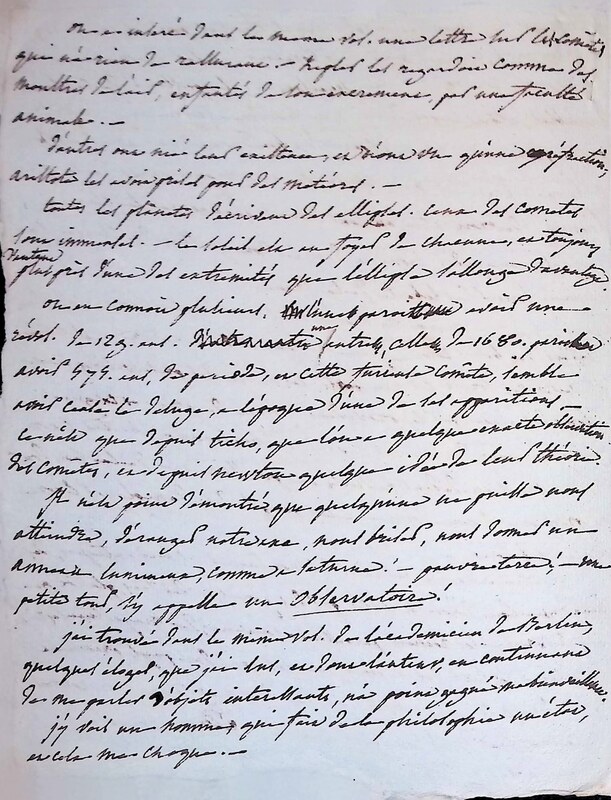 on a inseré dans le meme vol. une lettre sur les cometes
qui n'a rien de rassurant. - Kepler les regardoit comme des
monstres de l'air, enfantés de son excrement, par une faculté
animale. -
d'autres ont nié leur existence, et n'ont vu qu'une refraction,
aristote les avoit pris pour des météores. -
toutes les planetes décrivent des ellipses. Ceux des cometes
sont immenses. - le soleil est au foyer de chacune, et toujours
d'autant
plus près d'une des extremités que l'ellipse s'allonge davantage.
on en connoit plusieurs. l'une paroit avoir une
révol. de 129. ans. une entre autres, celle de 1680. paroitroit
avoir 575. ans, de periode, et cette furieuse comète, semble
avoir causé le deluge, a l'époque d'une de ses apparitions -
ce n'est que depuis ticho, que l'on a quelque exacte observation
des comètes, et depuis newton quelque idée de leur théorie.
Il n'est point démontré que quelqu'une ne puisse nous
atteindre, déranger notre axe, nous briser, nous donner un
anneau lumineux, comme a saturne! - pauvre terre! - une
petite tour, s'y appelle un Observatoire!
j'ai trouvé dans le même vol. de l'académicien de Berlin,
quelques éloges, que j'ai lus, et dont l'auteur, en continuant
de me parler d'objets interessants, n'a point gagné ma bienveillance.
j'y vois un homme, qui fait de la philosophie un état,
et cela me choque. -